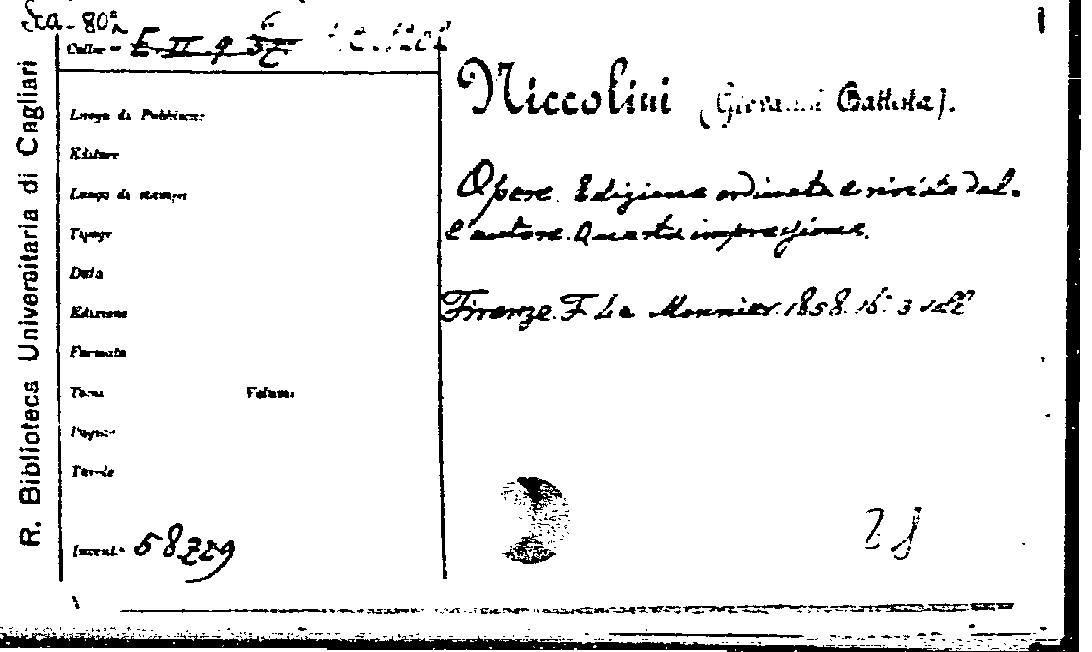 R. Biblioteca Universitaria di Cagliari
Luogo di
Editore
Luogo di stampa
Tipogr
Data
Edizione
Formato
Tomi Volumi
Pagine
Tavole
Niccolini (Giovanni Battista).
Opere. Edizione ordinata e rivista dal-
l'autore. Quarta impressione.
Firenze. F Le Monnier. 1858. 16° 3 voll